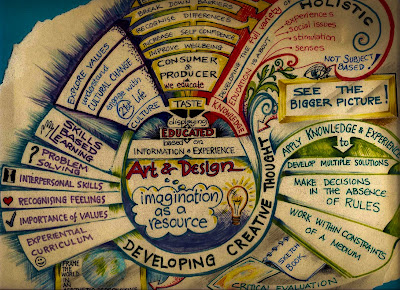 BREAK DOWN BARRIERS
RECOGNISE DIFFERENCES
INCREASE SELF CONFIDENCE
IMPROVE WELLBEING
CONSUMER
&
PRODUCER
we educate
TASTE
EXPLORE VALUES
understand
CULTURAL CHANGE
engage with
CULTURE
KNOWLEDGE
EDUCATION IS ABOUT
HOLISTIC
experiences
social issues
stimulation
senses
NOT SUBJECT
BASED!
SEE THE
BIGGER PICTURE!
displaying
EDUCATED
based on
INFORMATION & EXPERIENCE
Art & Design
is
imagination
as a
resource
DEVELOPING CREATIVE THOUGHT
SKILLS
BASED
LEARNING
? PROBLEM
SOLVING
INTERPERSONAL SKILLS
RECOGNISING FEELINGS
IMPORTANCE of VALUES
EXPERIENTIAL
CURRICULUM
APPLY KNOWLEDGE & EXPERIENCE
to
DEVELOP MULTIPLE SOLUTIONS
MAKE DECISIONS
IN THE ABSENCE
OF RULES
WORK WITHIN CONSTRAINTS
OF A MEDIUM
SKETCH
BOOK
CRITICAL EVALUATION
FRAME
THE WORLD
IN AN